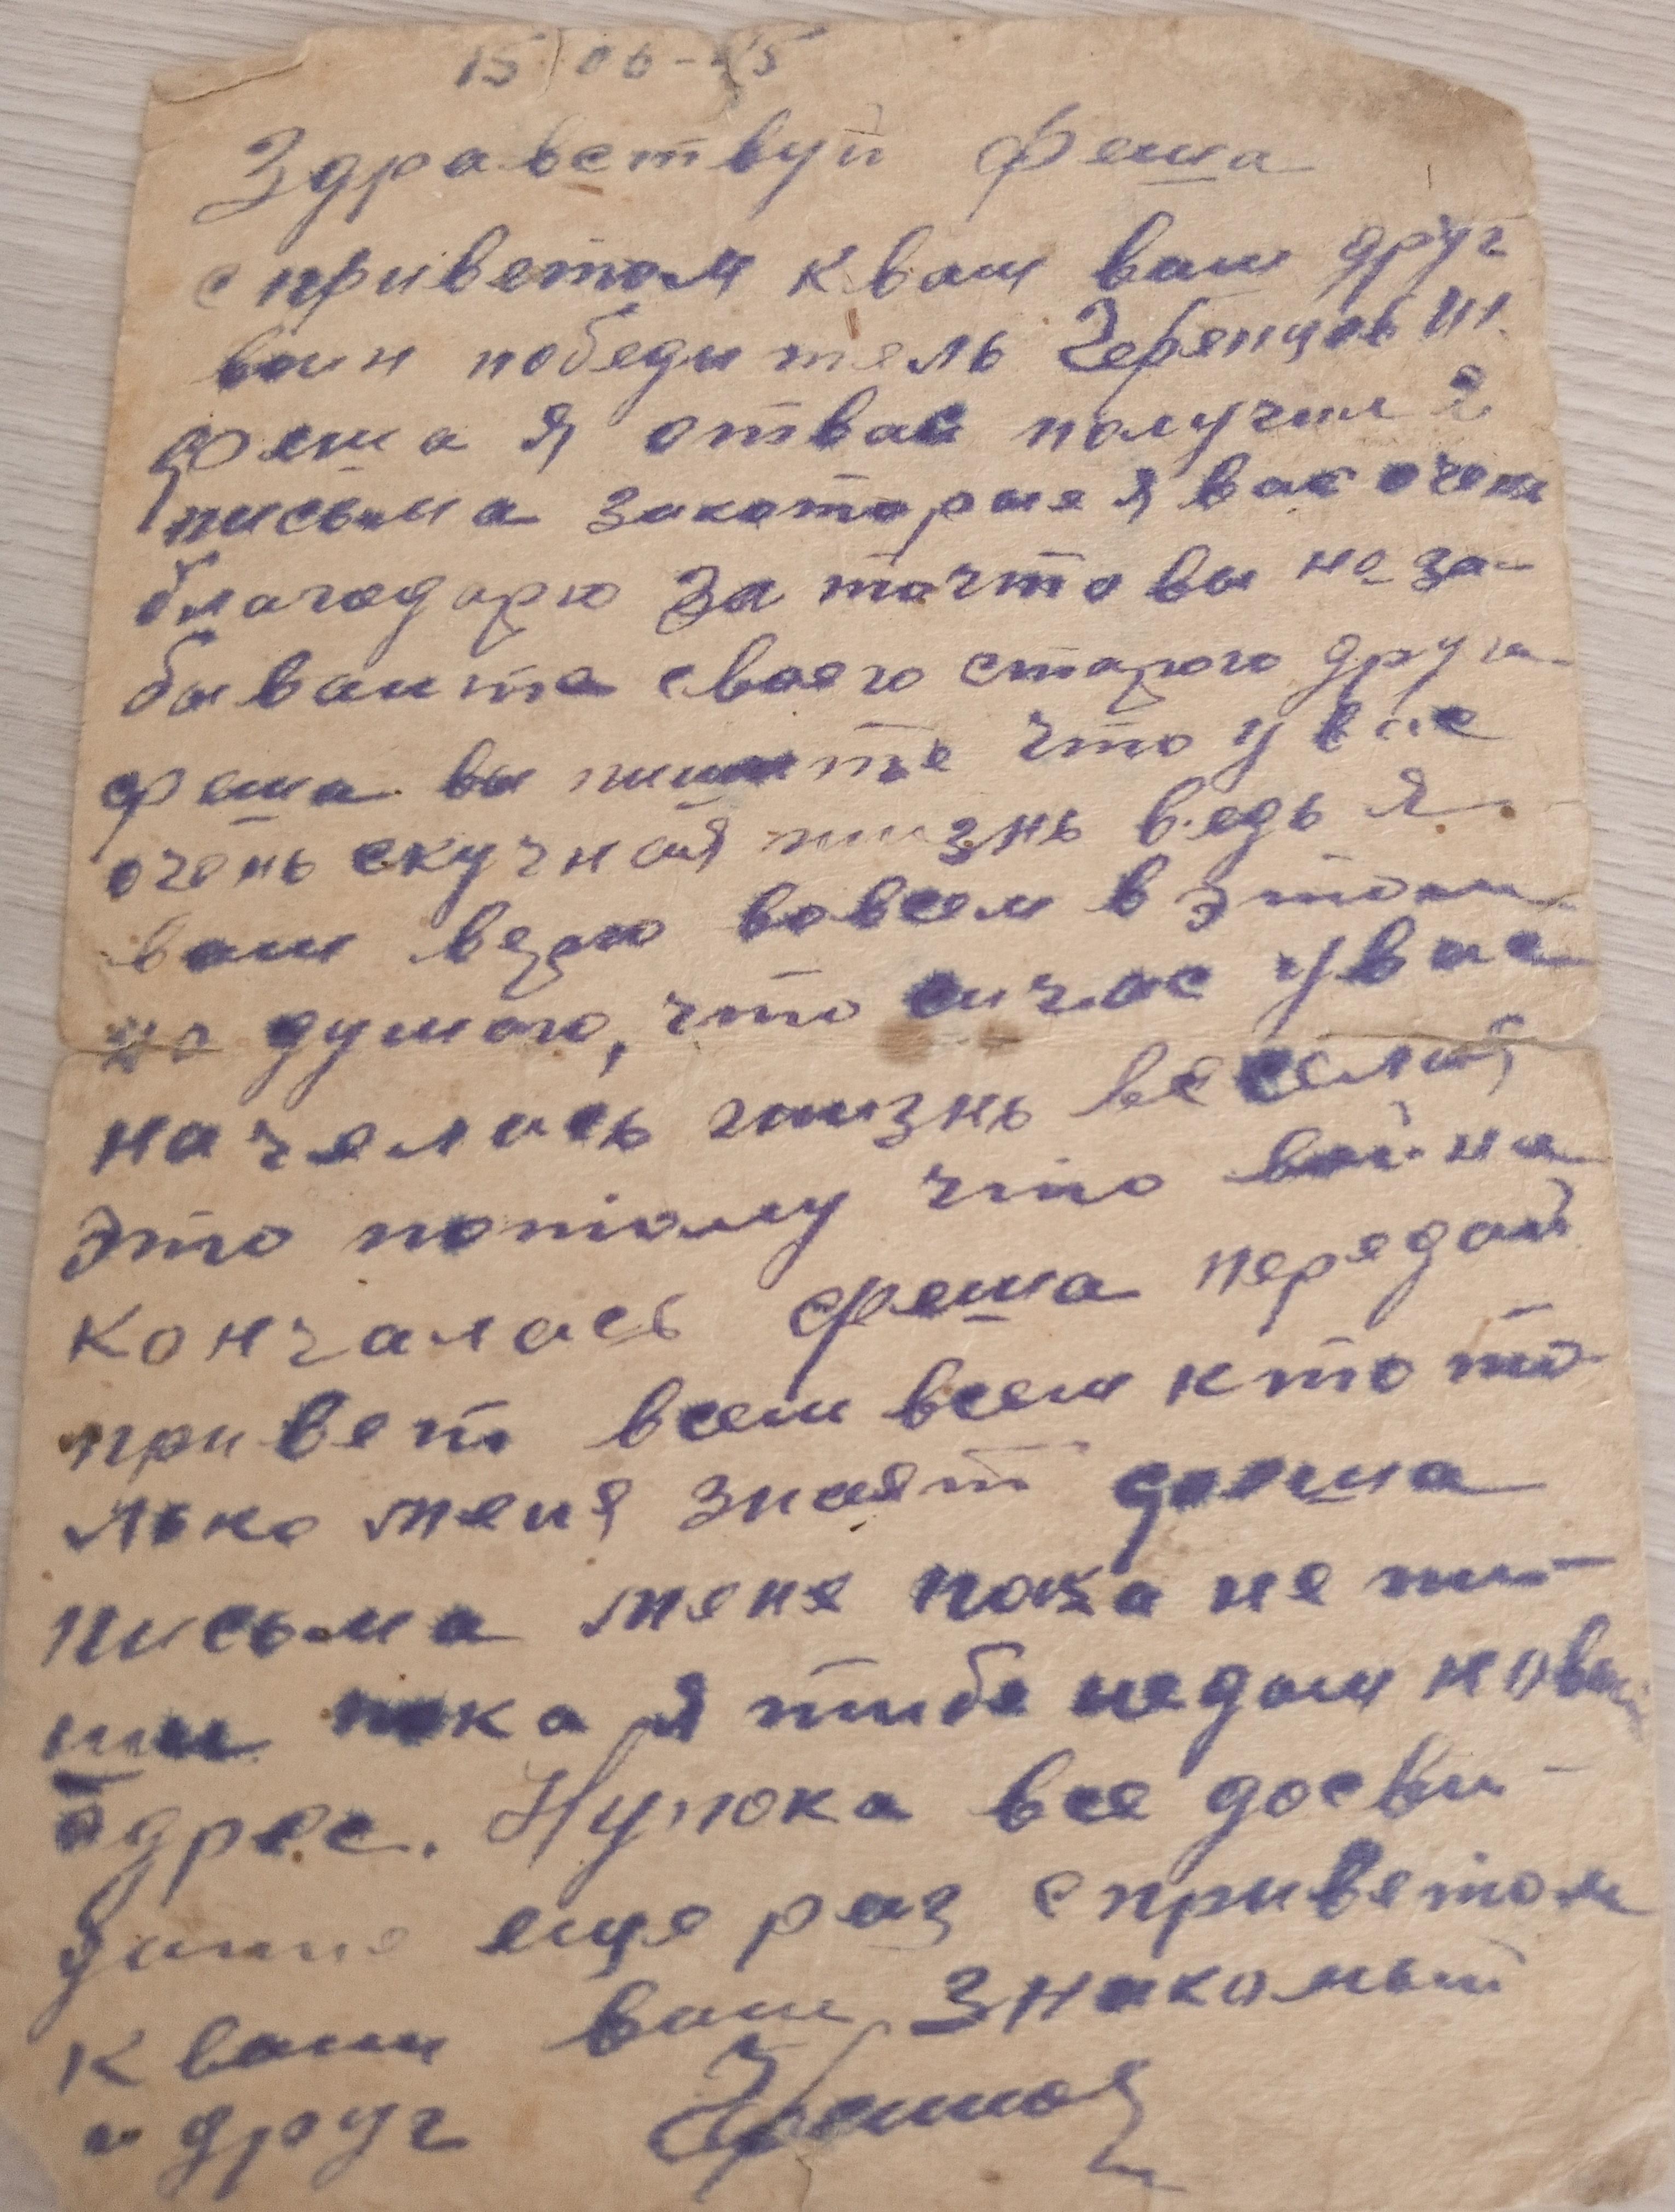 15 06-45
Здравствуй Феша
с приветом к вам ваш друг
воин победитель Черенцов
Феша я отвас получил 2
письма закоторые я вас очень
благодарю За точто вы не за-
бываите своего старого друга
феша вы пишите что у вас
очень скучная жизнь ведь я
вам верю вовсем в этом
но думаю, что сичас увас
началась жизнь веселая
это потому что война
кончалась феша передай
привет всем всем кто то
лько меня знает феша
письма мене пока не пи-
ши пока я тибе недам новый
адрес. Ну пока все досви-
дания еще раз с приветом
к вам ваш знакомый
и друг